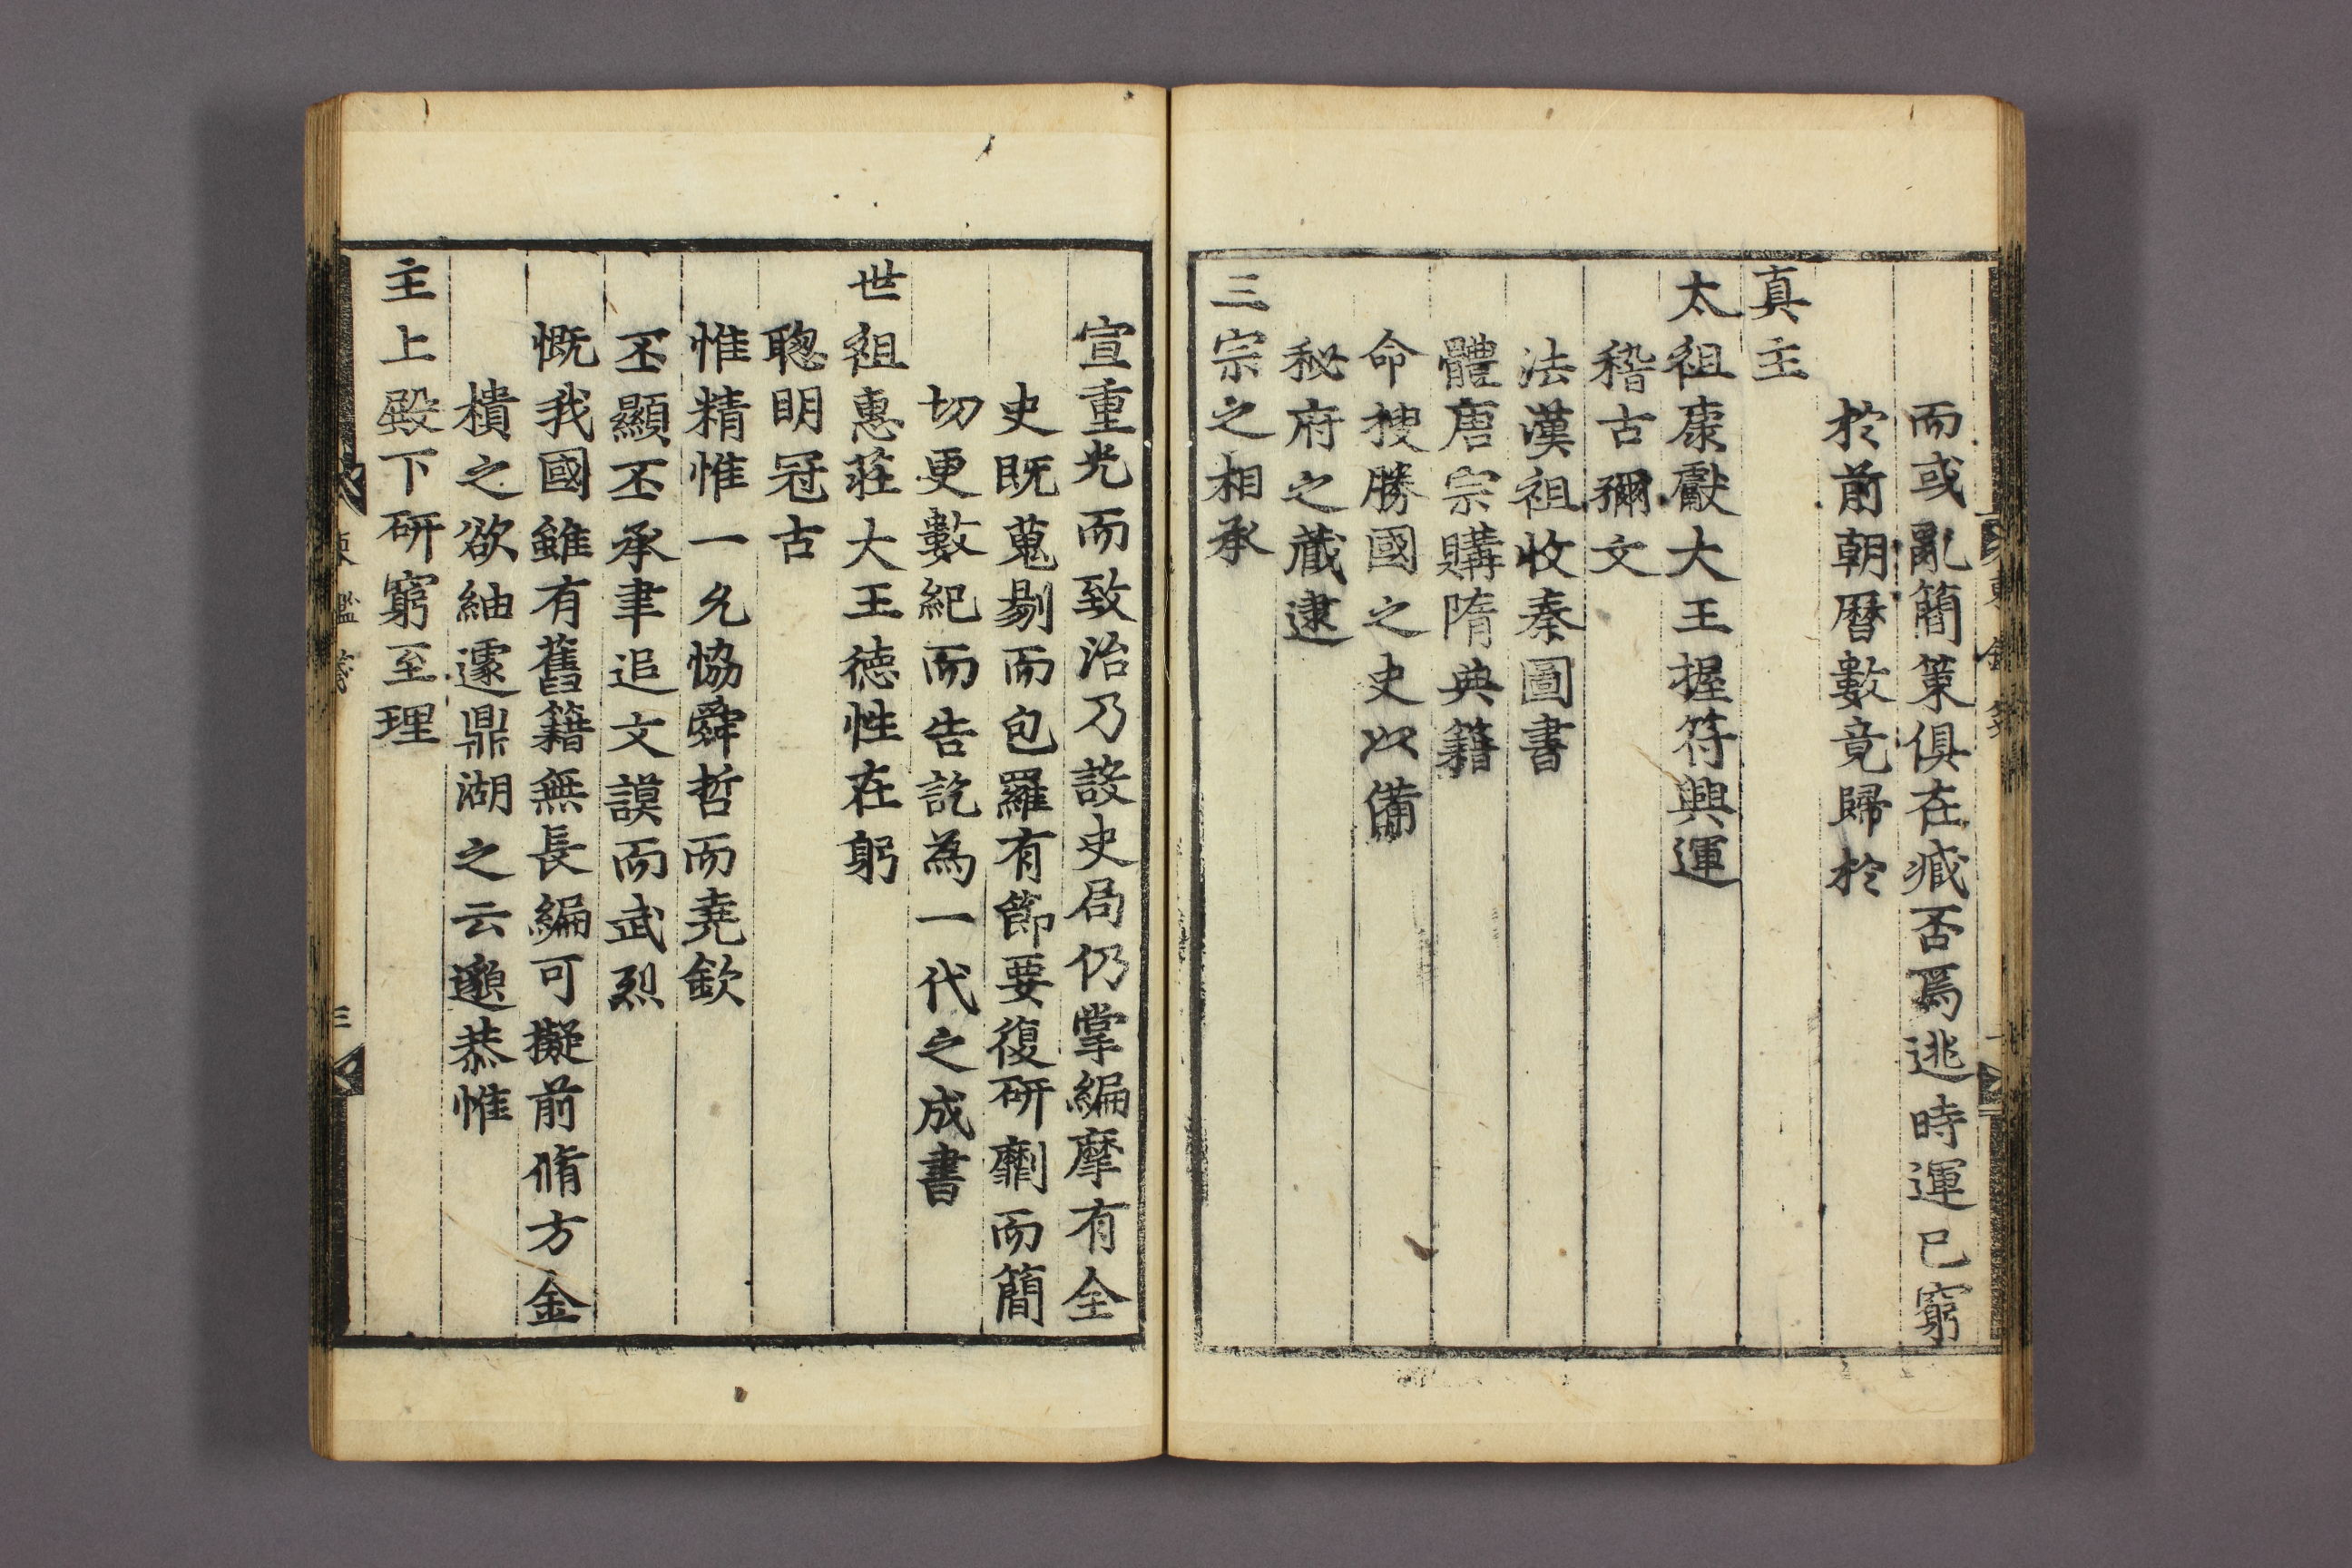 而或亂簡策俱在臧否焉逃時運已窮
於前朝曆數竟歸於
真主
太祖康獻大王握符興運
稽古彌文
法漢祖收秦圖書
體唐宗購隋典籍
命搜勝國之史以備
秘府之藏逮
三宗之相承
宣重光而致治乃設史局仍掌編摩有全
史既蒐剔而包羅有節要復研劘而簡
切更數紀而告訖為一代之成書
世祖惠莊大王德性在躬
聰明冠古
惟精惟一允恊舜哲而堯欽
丕顯丕承聿追文謨而武烈
慨我國雖有舊籍無長編可擬前脩方金
樻之欲紬遽鼎湖之云邈恭惟
主上殿下研窮至理
三